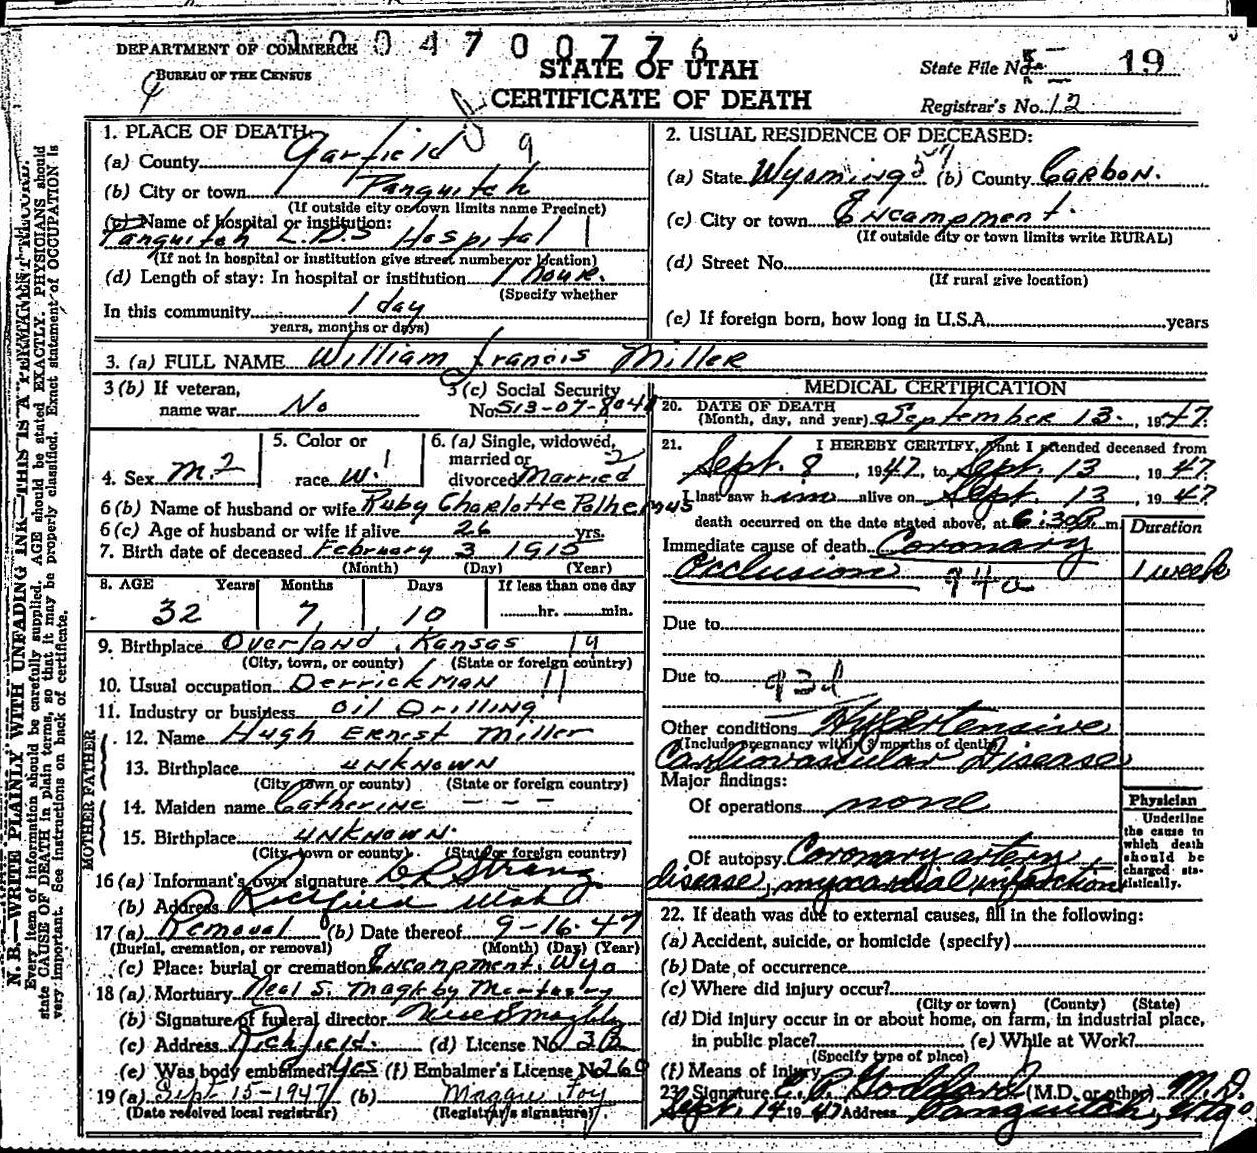 0004700776
DEPARTMENT OF COMMERCE
BUREAU OF THE CENSUS
STATE OF UTAH
CERTIFICATE OF DEATH
State File No. 19
Registrar's No. 12
1. PLACE OF DEATH:
(a) County Garfield 9
(b) City or town Panguitch
(If outside city or town limits name Precinct)
(c) Name of hospital or institution:
Panguitch L.D.S Hospital 1
(If not in hospital or institution give street number or location)
(d) Length of stay: In hospital or institution 1 hour.
(Specify whether
In this community 1 day
years, months or days)
2. USUAL RESIDENCE OF DECEASED:
(a) State Wyoming 57 (b) County Carbon.
(c) City or town Encampment.
(If outside city or town limits write RURAL)
(d) Street No.
(If rural give location)
(e) If foreign born, how long in U.S.A. years
3. (a) FULL NAME William Francis Miller
3 (b) If veteran,
name war No
3 (c) Social Security
No. 513-07-8048
4. Sex M. 2
5. Color or
race W. 1
6. (a) Single, widowed,
married or
divorced Married 2
6 (b) Name of husband or wife Ruby Charlotte Polhemus
6 (c) Age of husband or wife if alive 26 yrs.
7. Birth date of deceased February 3 1915
(Month) (Day) (Year)
8. AGE Years Months Days If less than one day
32 7 10 hr. min.
9. Birthplace Overland, Kansas 14
(City, town, or county) (State or foreign country)
10. Usual occupation Derrickman 11
11. Industry or business Oil Drilling
FATHER
12. Name Hugh Ernest Miller
13. Birthplace unknown
(City town or county) (State or foreign country)
MOTHER
14. Maiden name Catherine - - -
15. Birthplace unknown.
(City, town or county) (State or foreign country)
16 (a) Informant's own signature Strang
(b) Address Richfield Utah
17 (a) Removal (b) Date thereof 9-16-47
(Burial, cremation, or removal) (Month) (Day) (Year)
(c) Place: burial or cremation Encampment, Wyo
18 (a) Mortuary Neal S. Magleby Mortuary
(b) Signature of funeral director Neal S Magleby
(c) Address Richfield. (d) License No. 32
(e) Was body embalmed? Yes (f) Embalmer's License No. 260
19 (a) Sept 15-1947 (b) Maggie Foy
(Date received local registrar) (Registrar's signature)
MEDICAL CERTIFICATION
20. DATE OF DEATH
(Month, day, and year) September 13. 1947.
21. I HEREBY CERTIFY, that I attended deceased from
Sept. 8, 1947, to Sept. 13 1947.
I last saw him alive on Sept. 13 1947
death occurred on the date stated above, at 6:30 P. m.
Duration
Immediate cause of death Coronary
Occlusion 94a 1 week
Due to
Due to 93d
Other conditions Hypertensive
(Include pregnancy within 3 months of death)
Cardiovascular Disease
Major findings:
Of operations none
Of autopsy Coronary artery
disease, myocardial infarction
Physician
Underline
the cause to
which death
should be
charged sta-
tistically.
22. If death was due to external causes, fill in the following:
(a) Accident, suicide, or homicide (specify)
(b) Date of occurrence
(c) Where did injury occur?
(City or town) (County) (State)
(d) Did injury occur in or about home, on farm, in industrial place,
in public place? (e) While at Work?
(Specify type of place)
(f) Means of injury
23 Signature Goddard (M.D. or other) M.D.
Sept. 14 1947 Address Panguitch, Utah
N. B.—WRITE PLAINLY WITH UNFADING INK—THIS IS A PERMANENT RECORD.
Every item of information should be carefully supplied. AGE should be stated EXACTLY. PHYSICIANS should
state CAUSE OF DEATH in plain terms, so that it may be properly classified. Exact statement of OCCUPATION is
very important. See instructions on back of certificate.